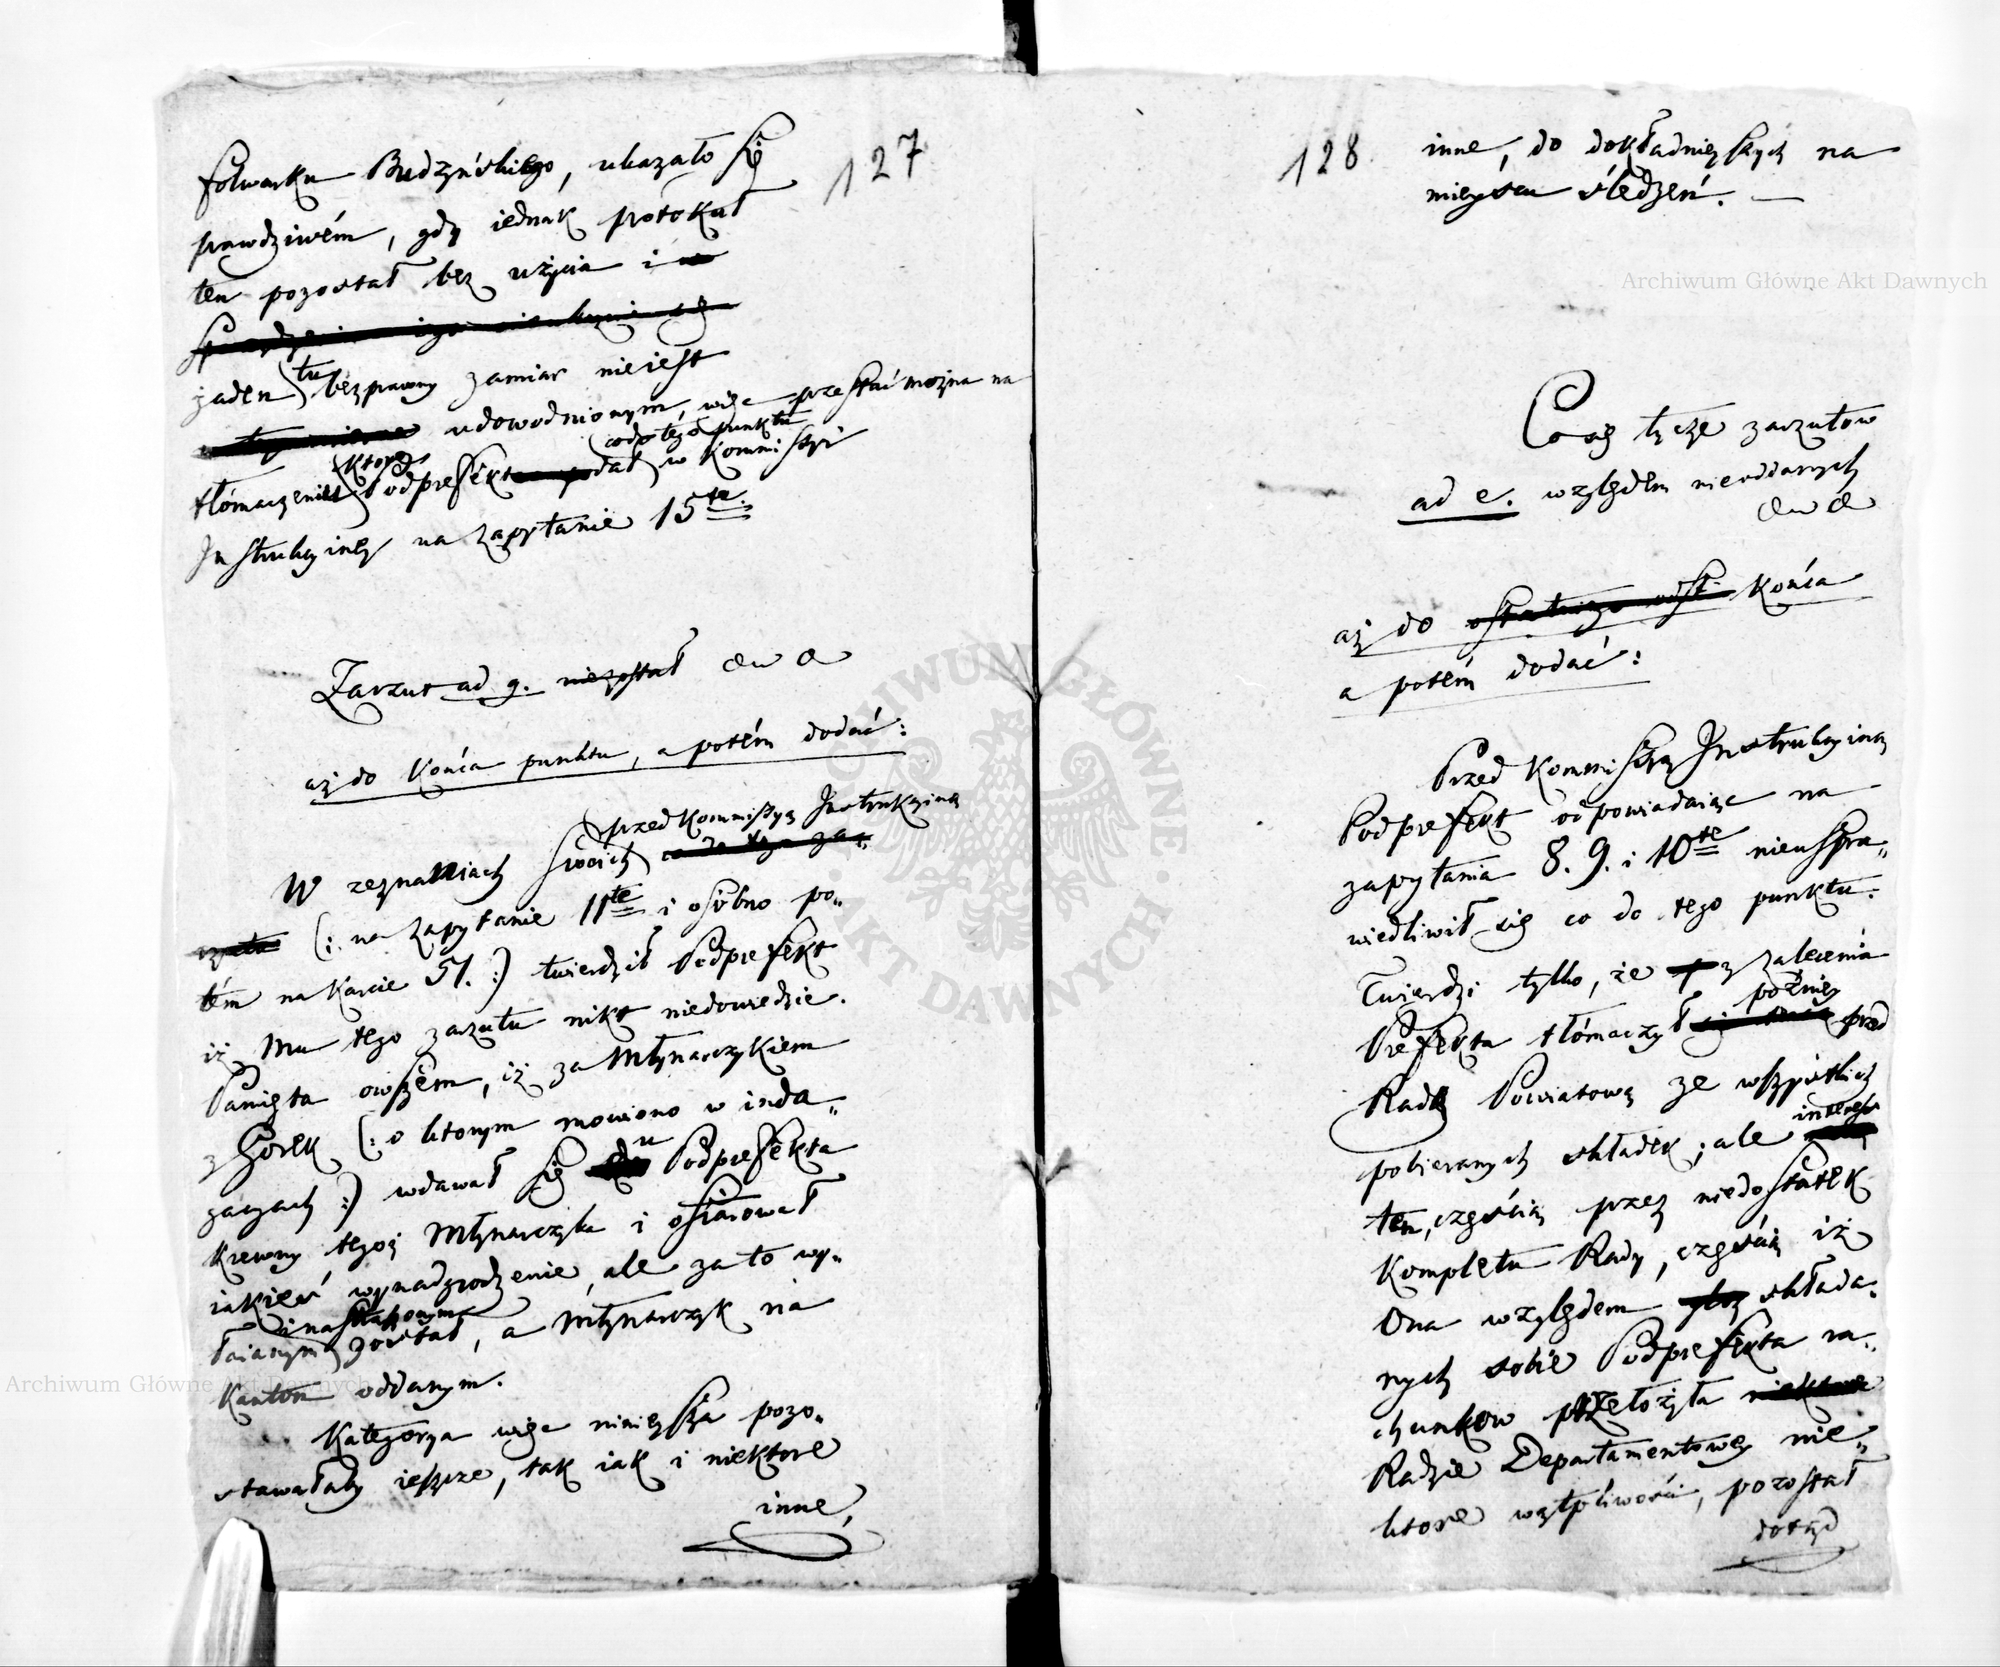 127
folwarku Budzyńskiego, ukazało się
prawdziwém, gdy iednak protokuł
ten pozostał bez użycia i
żaden tu bezprawny zamiar nie iest
udowodnionym, więc przestać można na
tłómaczeniu które Podprefekt dał co do tego punktu w Kommissyi
Instrukcyiney na zapytanie 15te.
Zarzut ad g. niezostał
aż do Końca punktu, a potém dodać:
W zeznaniach swoich przed Kommissyą Instrukcyiną
(: na zapytanie 11te i osóbno po„
tém na Karcie 51. :) twierdził Podprefekt
iż Mu tego zarzutu nikt niedowiedzie.
Pamięta owszem, iż za Młynarczykiem
z Górek (: o ktorym mowiono w inda„
gacyach :) wdawał się u Podprefekta
Krewny tegoż Młynarczyka i ofiarował
iakieś wynadgrodzenie, ale za to wy„
łaianym i nastraszonym został, a Młynarczyk na
Kanton oddanym.
Kategorya więc ninieysza pozo„
stawałaby ieszcze, tak iak i niektore
inne,
128
inne, do dokładnieyszych na
mieyscu śledzeń. —
Co się tycze zarzutow
ad e. względem nieoddanych
aż do Końca
a potém dodać:
Przed Kommissyą Instrukcyiną
Podprefekt odpowiadaiąc na
zapytania 8. 9. i 10te nieuspra„
wiedliwił się co do tego punktu.
Twierdzi tylko, że z zalecenia
Prefekta tłómaczył się późniey przed
Radą Powiatową ze wszystkich
pobieranych składek; ale interes
ten, częścią przez niedostatek
Kompletu Rady, częścią iż
Ona względem składa„
nych sobie Podprefekta ra„
chunkow przełożyła
Radzie Departamentowey nie„
ktore wątpliwości, pozostał
dotąd
Archiwum Główne Akt Dawnych
Archiwum Główne Akt Dawnych
ARCHIWUM GŁÓWNE · AKT DAWNYCH ·